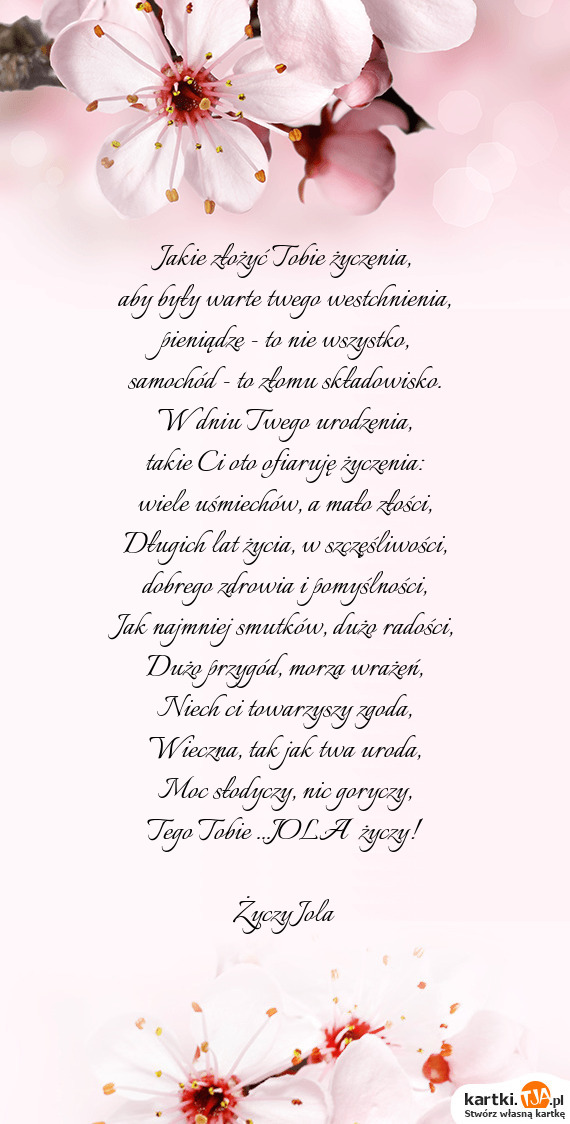 Jakie złożyć Tobie życzenia,
aby były warte twego westchnienia,
pieniądze - to nie wszystko,
samochód - to złomu składowisko.
W dniu Twego urodzenia,
takie Ci oto ofiaruję życzenia:
wiele uśmiechów, a mało złości,
Długich lat życia, w szczęśliwości,
dobrego zdrowia i pomyślności,
Jak najmniej smutków, dużo radości,
Dużo przygód, morza wrażeń,
Niech ci towarzyszy zgoda,
Wieczna, tak jak twa uroda,
Moc słodyczy, nic goryczy,
Tego Tobie ...JOLA życzy!
Życzy Jola
kartki.TJA.pl
Stwórz własną kartkę